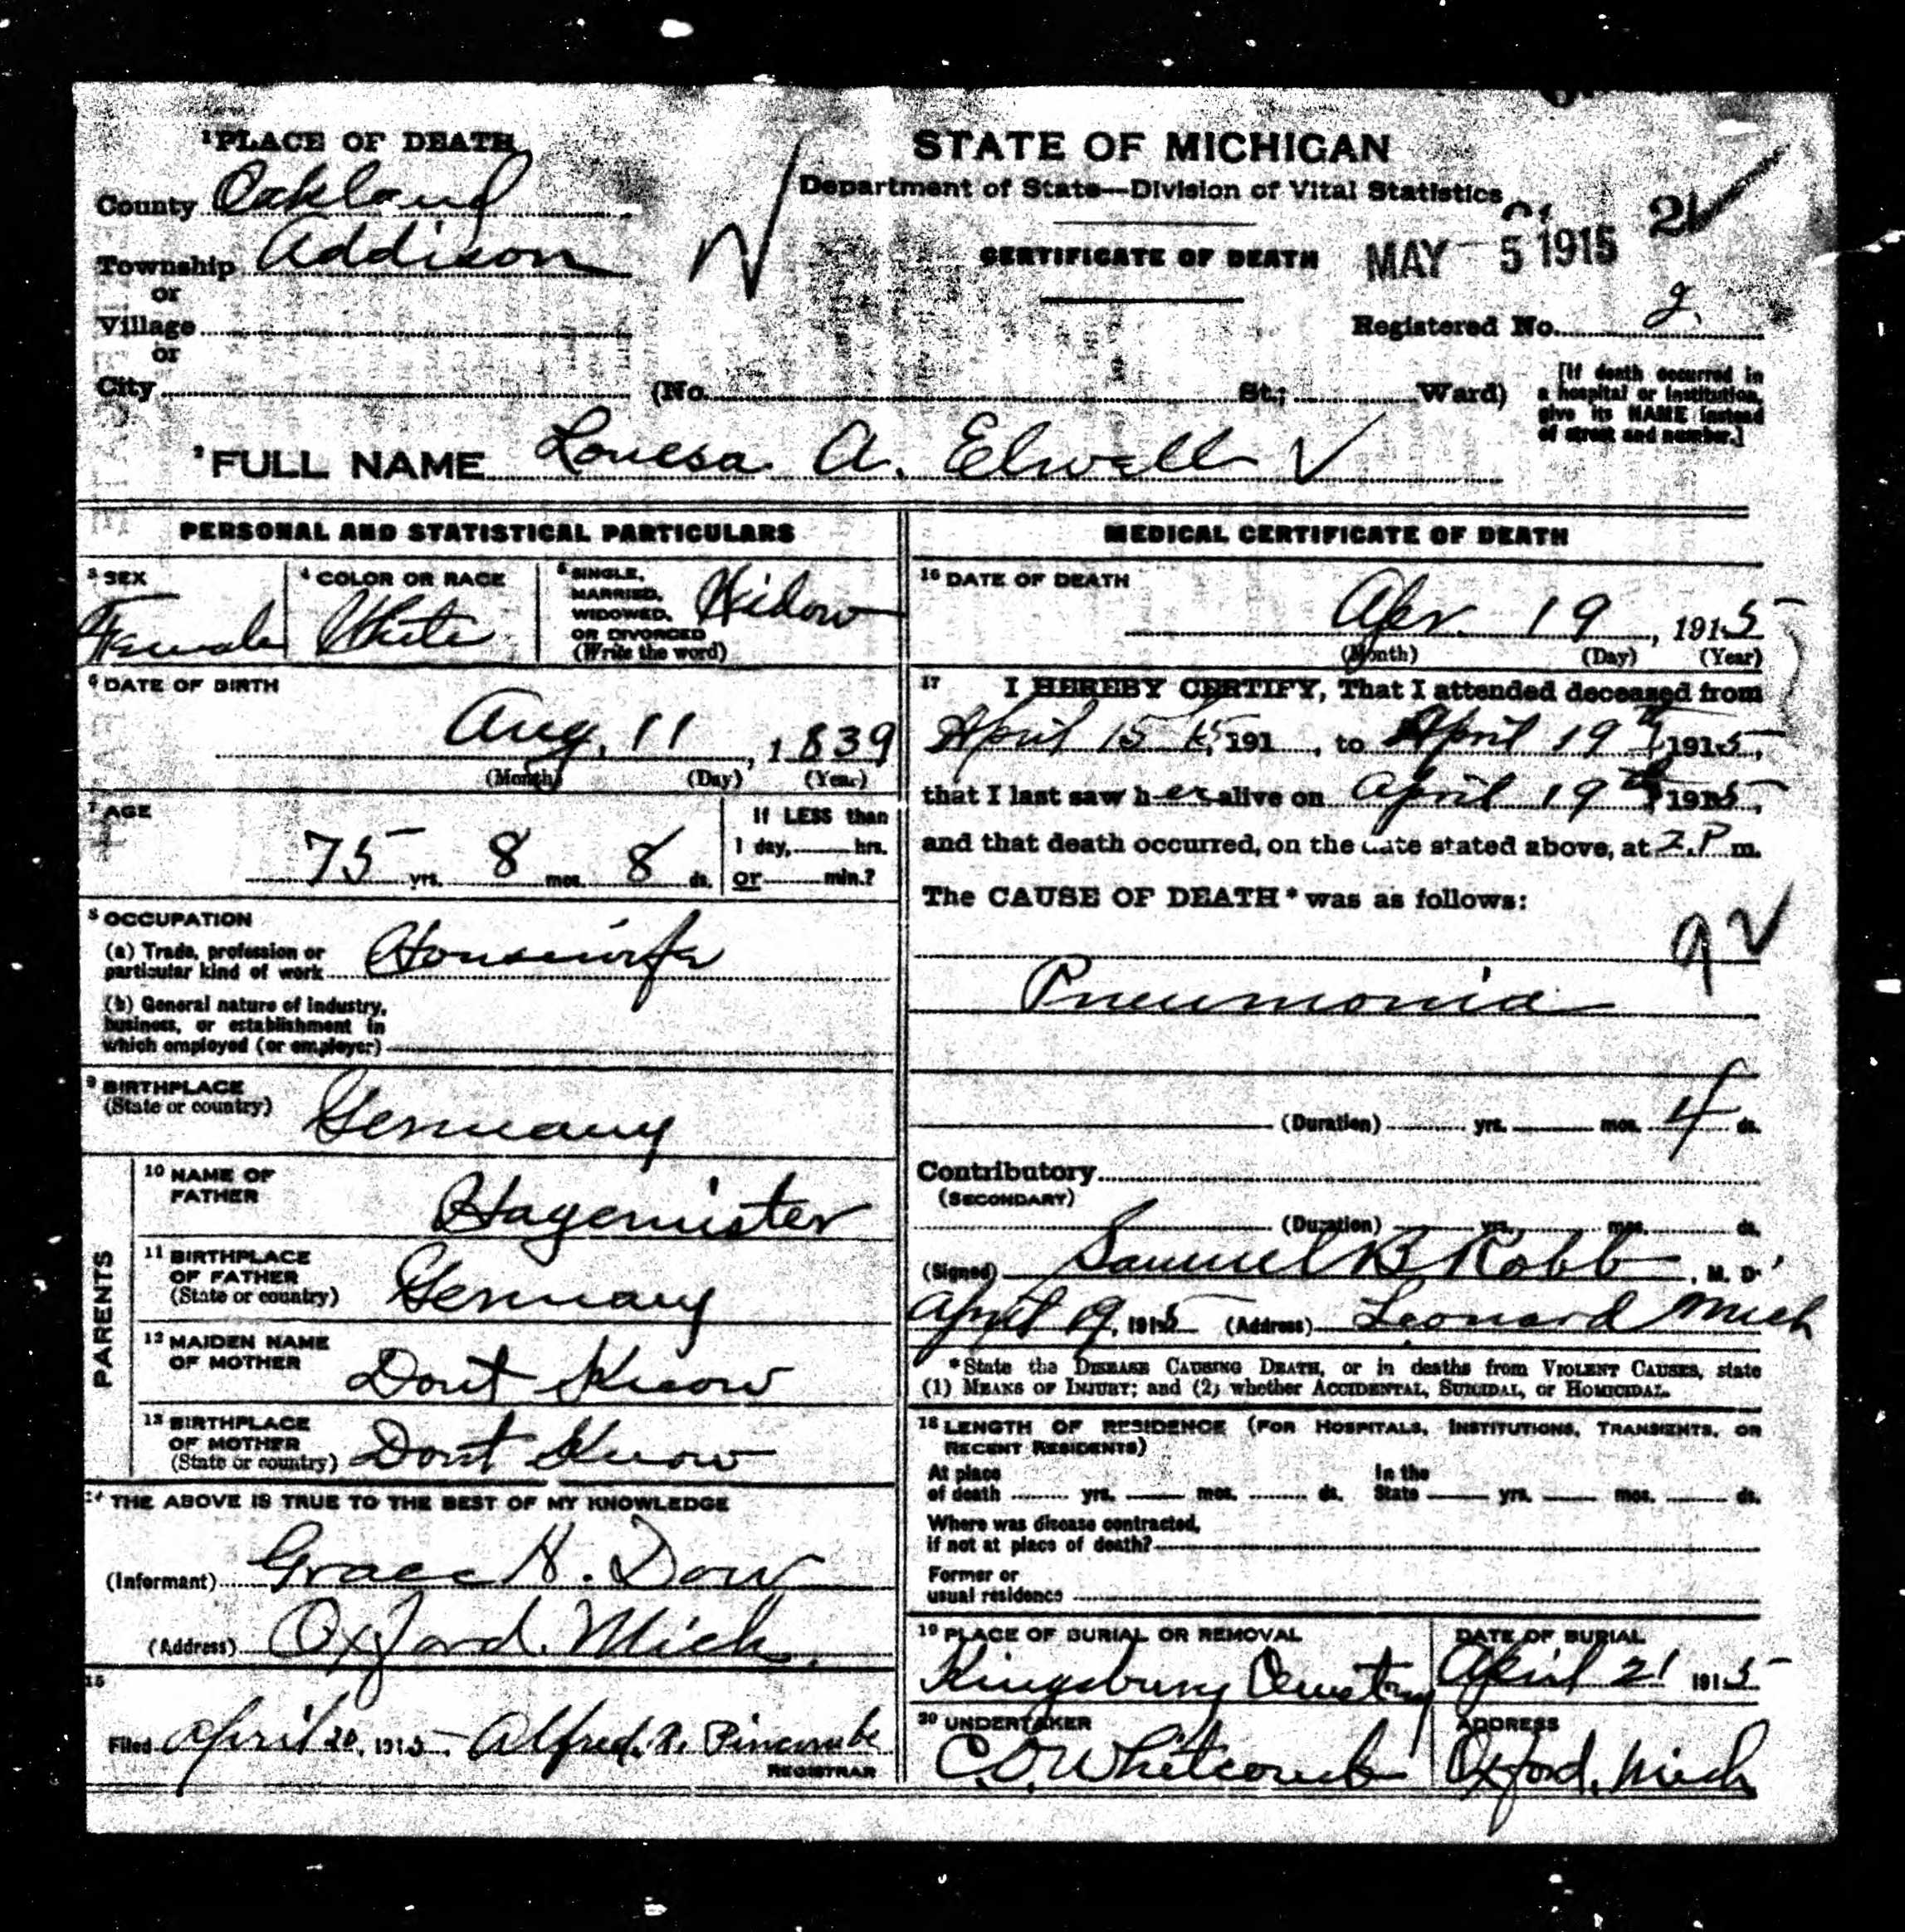 1 PLACE OF DEATH
County Oakland
Township Addison
or
Village
or
City
(No. St.; Ward)
STATE OF MICHIGAN
Department of State—Division of Vital Statistics
CERTIFICATE OF DEATH
MAY 5 1915
21
Registered No. 2.
[If death occurred in
a hospital or institution,
give its NAME instead
of street and number.]
2 FULL NAME Louesa A. Elwell
PERSONAL AND STATISTICAL PARTICULARS
3 SEX
Female
4 COLOR OR RACE
White
5 SINGLE,
MARRIED,
WIDOWED,
OR DIVORCED
(Write the word)
Widow
6 DATE OF BIRTH
Aug. 11, 1839
(Month) (Day) (Year)
7 AGE
75 yrs. 8 mos. 8 ds.
If LESS than
1 day, hrs.
or min.?
8 OCCUPATION
(a) Trade, profession or
particular kind of work Housewife
(b) General nature of industry,
business, or establishment in
which employed (or employer)
9 BIRTHPLACE
(State or country)
Germany
PARENTS
10 NAME OF
FATHER
Hagemister
11 BIRTHPLACE
OF FATHER
(State or country)
Germany
12 MAIDEN NAME
OF MOTHER
Dont Know
13 BIRTHPLACE
OF MOTHER
(State or country)
Dont Know
14 THE ABOVE IS TRUE TO THE BEST OF MY KNOWLEDGE
(Informant) Grace H. Dow
(Address) Oxford. Mich.
15
Filed April 20, 1915. Alfred. N. Pincombe
REGISTRAR
MEDICAL CERTIFICATE OF DEATH
16 DATE OF DEATH
Apr. 19, 1915
(Month) (Day) (Year)
17 I HEREBY CERTIFY, That I attended deceased from
April 15 191, to April 19th, 1915,
that I last saw her alive on April 19th, 1915,
and that death occurred, on the date stated above, at 2.P m.
The CAUSE OF DEATH* was as follows:
92
Pneumonia
(Duration) yrs. mos. 4 ds.
Contributory
(SECONDARY)
(Duration) yrs. mos. ds.
(Signed) Samuel B Robb, M. D.
April 19, 1915 (Address) Leonard Mich
*State the DISEASE CAUSING DEATH, or in deaths from VIOLENT CAUSES, state
(1) MEANS OF INJURY; and (2) whether ACCIDENTAL, SUICIDAL, or HOMICIDAL.
18 LENGTH OF RESIDENCE (FOR HOSPITALS, INSTITUTIONS, TRANSIENTS, OR
RECENT RESIDENTS)
At place
of death yrs. mos. ds.
In the
State yrs. mos. ds.
Where was disease contracted,
if not at place of death?
Former or
usual residence
19 PLACE OF BURIAL OR REMOVAL
Kingsbury Cemetery
DATE OF BURIAL
April 21 1915
20 UNDERTAKER
C.O. Whitcomb
ADDRESS
Oxford. Mich